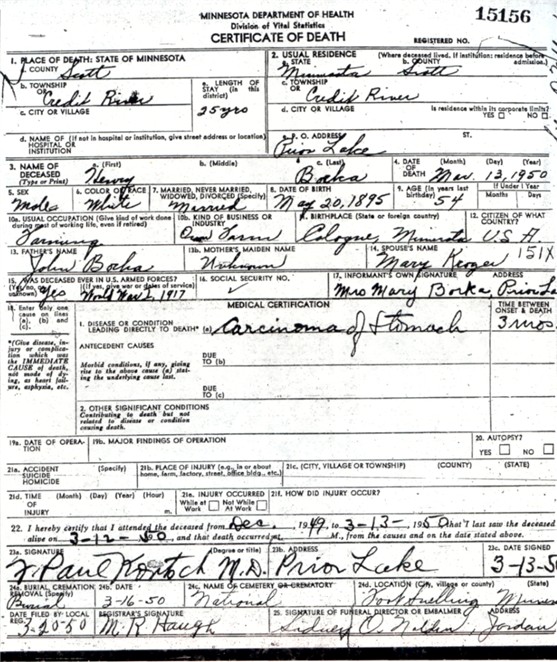 MINNESOTA DEPARTMENT OF HEALTH
Division of Vital Statistics
CERTIFICATE OF DEATH
15156
REGISTERED NO.
1. PLACE OF DEATH: STATE OF MINNESOTA
a. COUNTY Scott
b. TOWNSHIP OR Credit River
c. CITY OR VILLAGE
e. LENGTH OF STAY (in this district) 25 yrs
d. NAME OF (If not in hospital or institution, give street address or location)
HOSPITAL OR INSTITUTION
2. USUAL RESIDENCE (Where deceased lived. If institution: residence before admission.)
a. STATE Minnesota b. COUNTY Scott
c. TOWNSHIP OR Credit River
d. CITY OR VILLAGE Is residence within its corporate limits? YES NO
e. P. O. ADDRESS ST.
Prior Lake
3. NAME OF DECEASED (Type or Print)
a. (First) Henry b. (Middle) c. (Last) Borka
4. DATE OF DEATH (Month) (Day) (Year) Mar. 13, 1950
5. SEX Male
6. COLOR OR RACE White
7. MARRIED, NEVER MARRIED, WIDOWED, DIVORCED (Specify) Married
8. DATE OF BIRTH May 20, 1895
9. AGE (In years last birthday) 54
If Under 1 Year
Months Days
10a. USUAL OCCUPATION (Give kind of work done during most of working life, even if retired) Farming
10b. KIND OF BUSINESS OR INDUSTRY Own Farm
11. BIRTHPLACE (State or foreign country) Cologne Minnesota
12. CITIZEN OF WHAT COUNTRY? U.S.A
151X
13. FATHER'S NAME John Borka
13b. MOTHER'S MAIDEN NAME Unknown
14. SPOUSE'S NAME Mary
15. WAS DECEASED EVER IN U.S. ARMED FORCES? (If yes, give war or dates of service) Yes World War I, 1917
16. SOCIAL SECURITY NO.
17. INFORMANT'S OWN SIGNATURE ADDRESS
Mrs Mary Borka Prior La
18. Enter only one cause on lines (a), (b) and (c).
*(Give disease, injury or complication which was the IMMEDIATE CAUSE of death, not mode of dying, as heart failure, asphyxia, etc.
MEDICAL CERTIFICATION
TIME BETWEEN ONSET & DEATH
1. DISEASE OR CONDITION LEADING DIRECTLY TO DEATH* (a) Carcinoma of Stomach 3 mos.
ANTECEDENT CAUSES
Morbid conditions, if any, giving rise to the above cause (a) stating the underlying cause last.
DUE TO (b)
DUE TO (c)
2. OTHER SIGNIFICANT CONDITIONS
Contributing to death but not related to disease or condition causing death.
19a. DATE OF OPERATION
19b. MAJOR FINDINGS OF OPERATION
20. AUTOPSY? YES NO
21a. ACCIDENT SUICIDE HOMICIDE (Specify)
21b. PLACE OF INJURY (e.g., in or about home, farm, factory, street, office bldg., etc.)
21c. (CITY, VILLAGE OR TOWNSHIP) (COUNTY) (STATE)
21d. TIME OF INJURY (Month) (Day) (Year) (Hour) m.
21e. INJURY OCCURRED While at Work Not While At Work
21f. HOW DID INJURY OCCUR?
22. I hereby certify that I attended the deceased from Dec., 1949, to 3-13-, 1950 that I last saw the deceased
alive on 3-12-50, and that death occurred M., from the causes and on the date stated above.
23a. SIGNATURE (Degree or title) M.D.
23b. ADDRESS Prior Lake
23c. DATE SIGNED 3-13-50
24a. BURIAL, CREMATION REMOVAL (Specify) Burial
24b. DATE 3-16-50
24c. NAME OF CEMETERY OR CREMATORY National
24d. LOCATION (City, village or county) (State) Fort Snelling Minnes
DATE FILED BY LOCAL REG. 3-20-50
REGISTRAR'S SIGNATURE M. R. Haugh
25. SIGNATURE OF FUNERAL DIRECTOR OR EMBALMER ADDRESS
Sidney O. Jordan